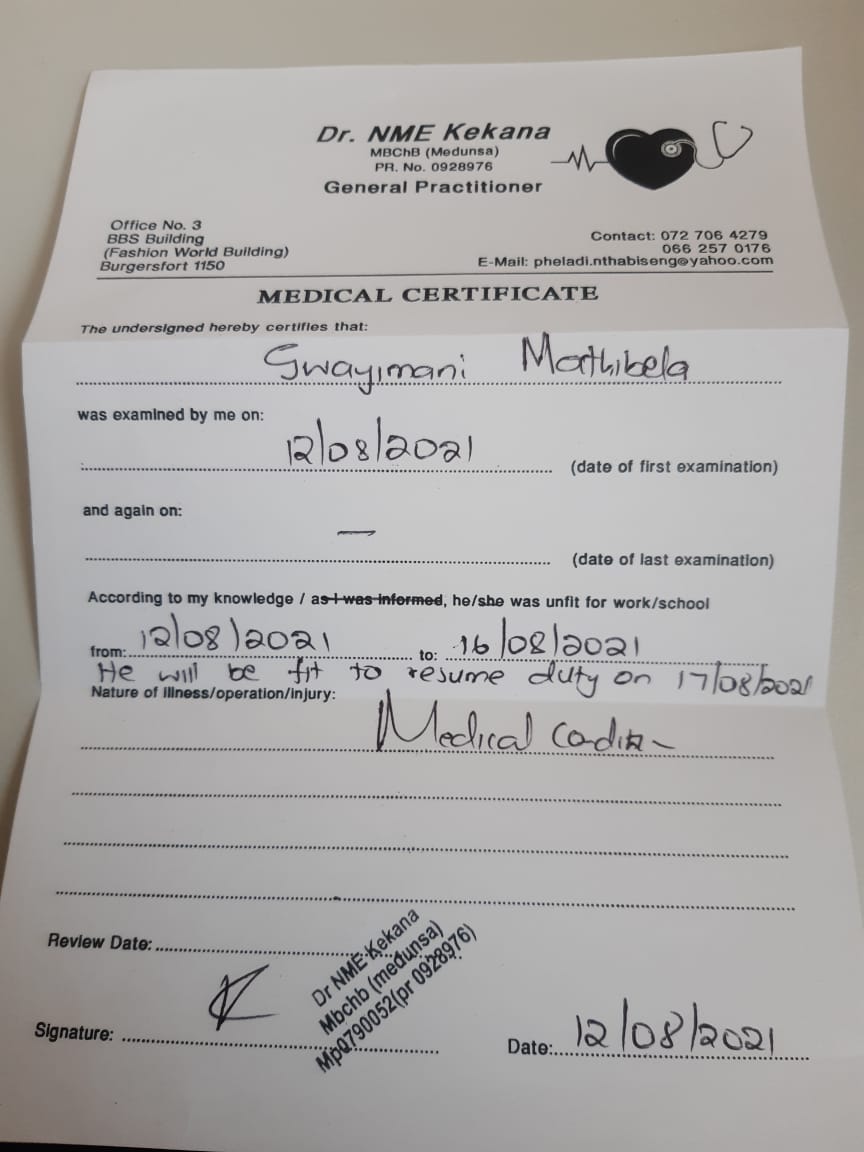 Dr. NME Kekana
MBChB (Medunsa)
PR. No. 0928976
General Practitioner
Office No. 3
BBS Building
(Fashion World Building)
Burgersfort 1150
Contact: 072 706 4279
066 257 0176
E-Mail: pheladi.nthabiseng@yahoo.com
MEDICAL CERTIFICATE
The undersigned hereby certifies that:
Gwayimani Mathibela
was examined by me on:
12/08/2021 (date of first examination)
and again on:
— (date of last examination)
According to my knowledge / as I was informed, he/she was unfit for work/school
from: 12/08/2021 to: 16/08/2021
He will be fit to resume duty on 17/08/2021
Nature of illness/operation/injury:
Medical
Review Date:
Dr NME Kekana
Mbchb (medunsa)
Mp0790052(pr 0928976)
Signature:
Date: 12/08/2021